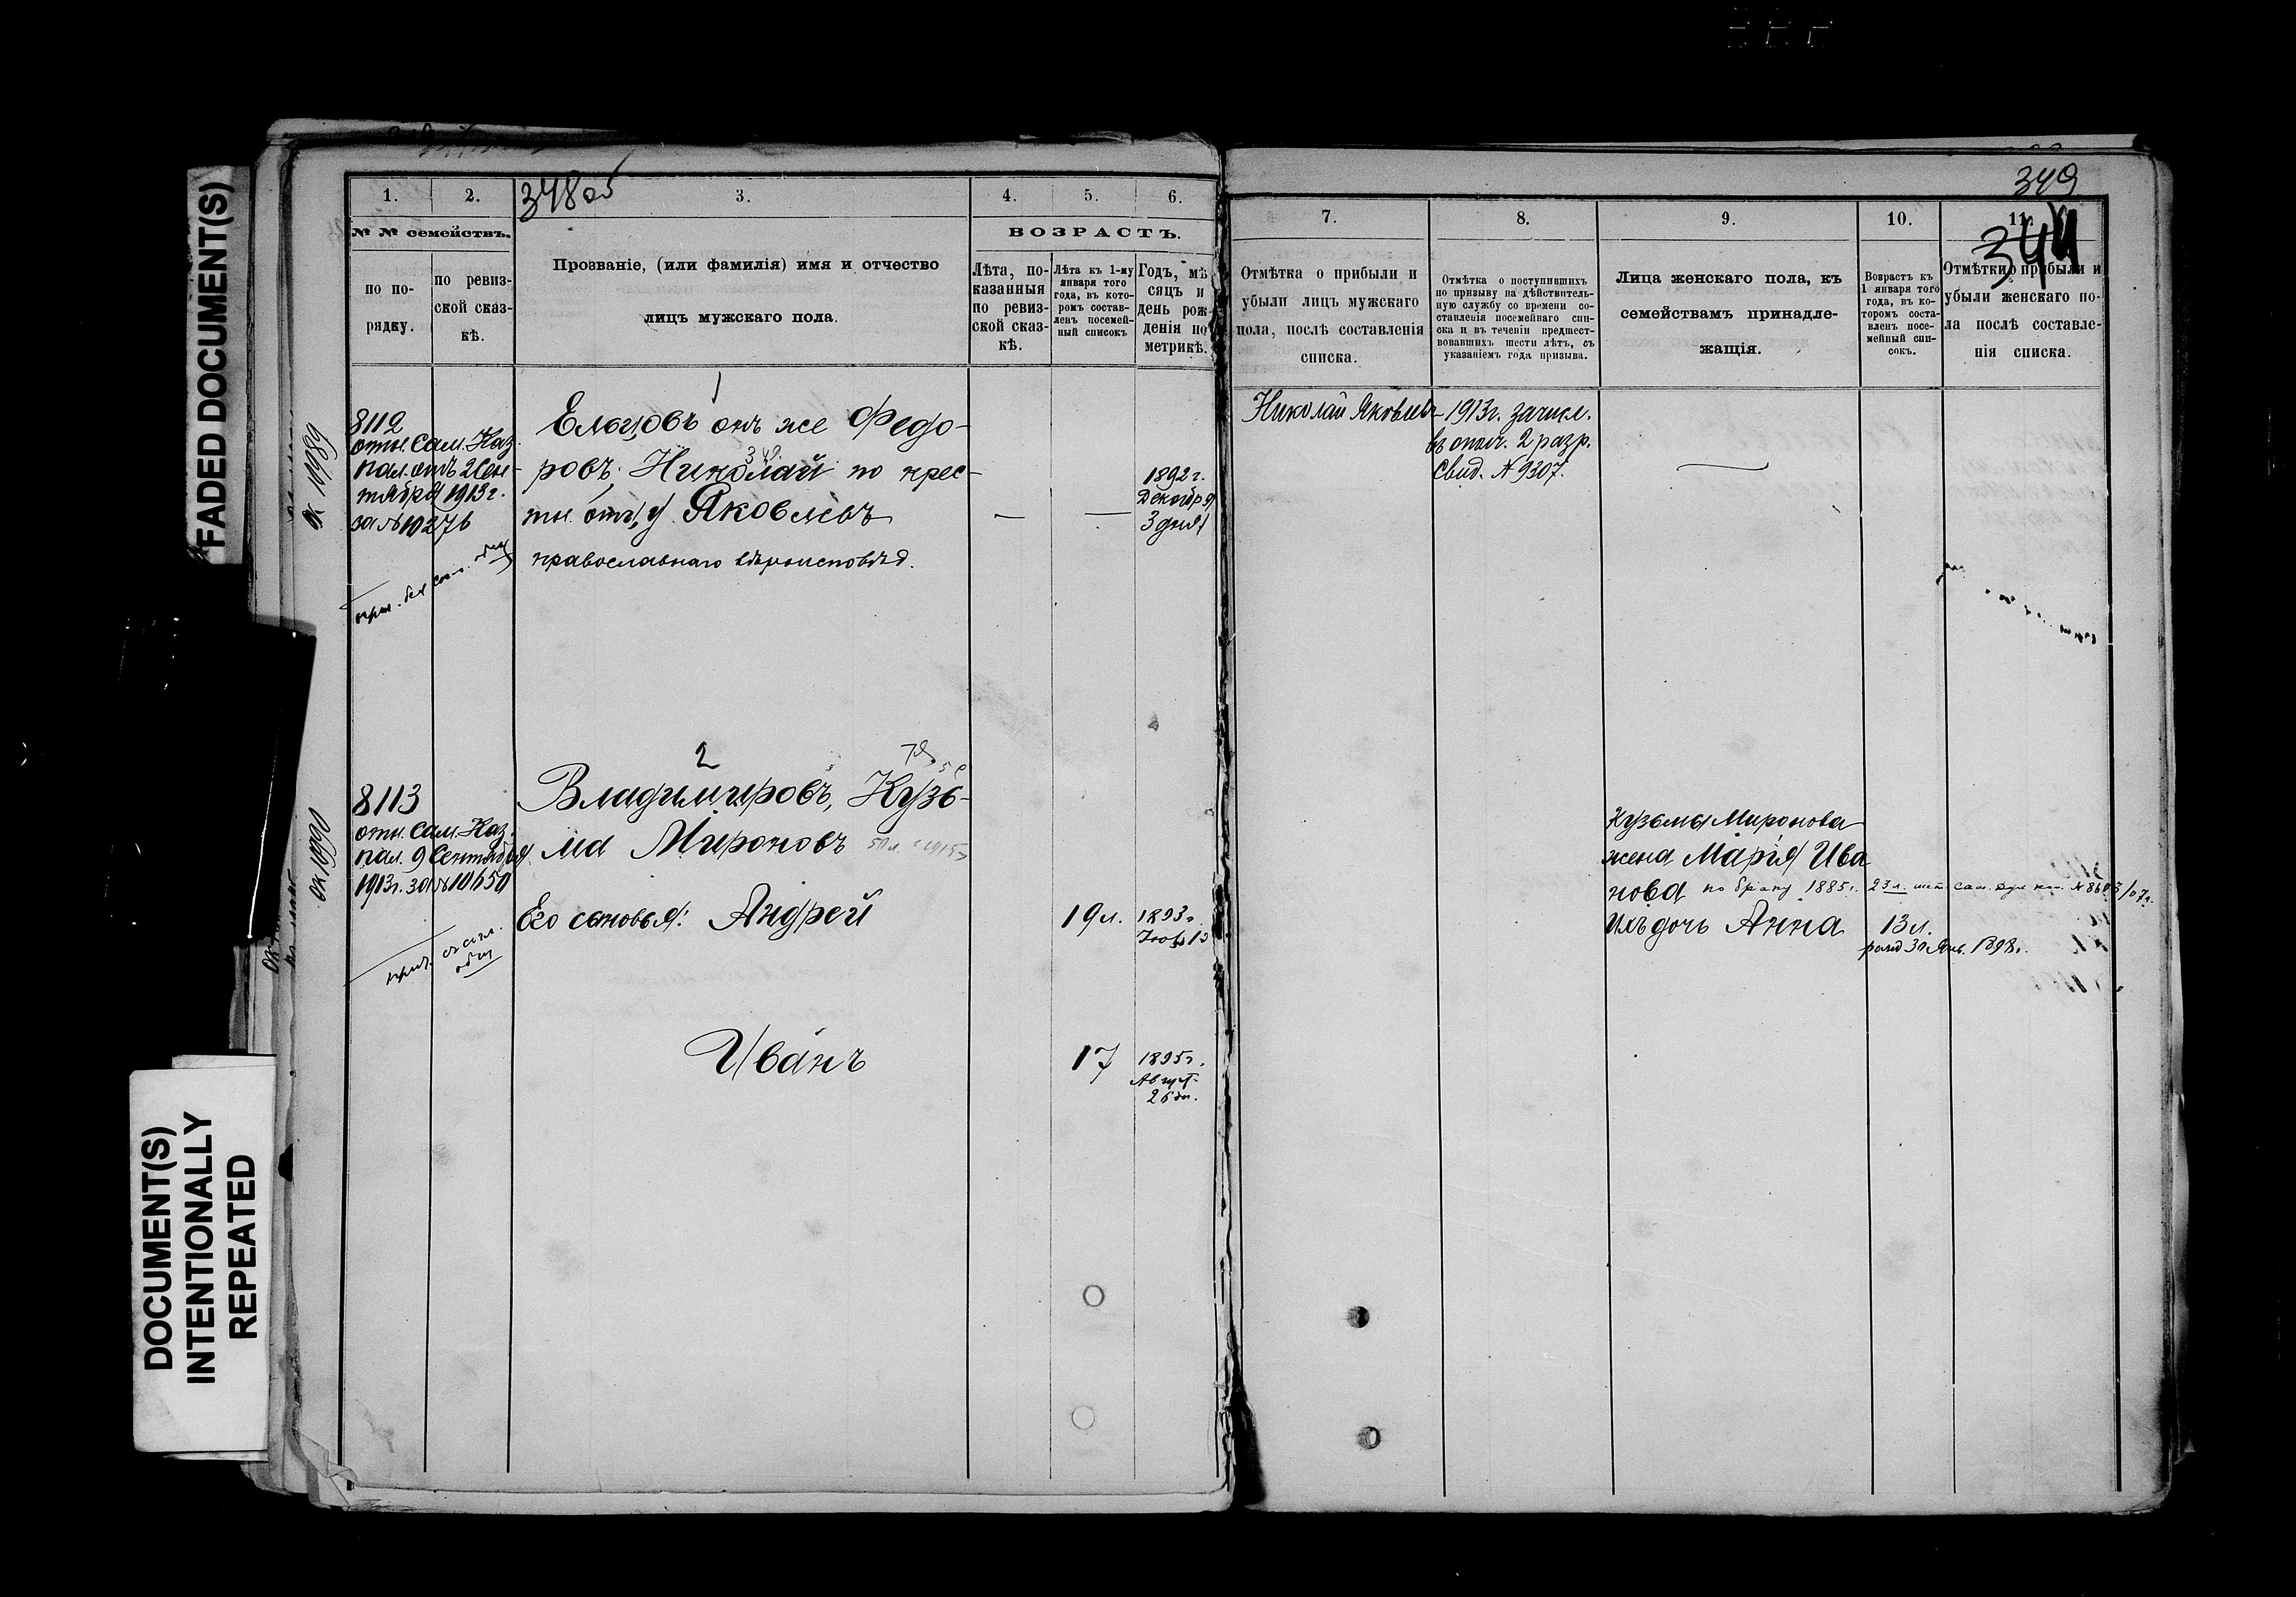 FADED DOCUMENT(S)
DOCUMENT(S)
INTENTIONALLY
REPEATED
348об
1. 2. 3. 4. 5. 6.
№ № семействъ.
по по-
рядку.
по ревиз-
ской сказ-
кѣ.
Прозваніе, (или фамилія) имя и отчество
лицъ мужскаго пола.
ВОЗРАСТЪ.
Лѣта, по-
казанныя
по ревиз-
ской сказ-
кѣ.
Лѣта къ 1-му
января того
года, въ кото-
ромъ состав-
ленъ посемей-
ный списокъ
Годъ, мѣ
сяцъ и
день рож-
денія по
метрикѣ.
ок 10989
8112
отн. Сам. Каз.
пал. отъ 2 Сен-
тября 1913 г.
за № 10276
1
Ельцовъ онъ же Федо-
ровъ, Николай по крес-
тн. отцу Яковлевъ
православнаго вѣроисповѣд.
1892 г.
Декабря
3 дня
ок 10990
8113
отн. Сам. Каз.
пал. 9 Сентября
1913 г. за № 10650
2
Владимировъ, Кузь-
ма Мироновъ
Его сыновья: Андрей
19 л.
1893 г.
Иванъ
17
1895 г.
Август
26 дн.
349
344
7. 8. 9. 10. 11.
Отмѣтка о прибыли и
убыли лицъ мужскаго
пола, послѣ составленія
списка.
Отмѣтка о поступившихъ
по призыву на дѣйствитель-
ную службу со времени со-
ставленія посемейнаго спи-
ска и въ теченіи предшест-
вовавшихъ шести лѣтъ, съ
указаніемъ года призыва.
Лица женскаго пола, къ
семействамъ принадле-
жащія.
Возрастъ къ
1 января того
года, въ ко-
торомъ соста-
вленъ посе-
мейный спи-
сокъ.
Отмѣтки о прибыли и
убыли женскаго по-
ла послѣ составле-
нія списка.
Николай Яковлевъ
1913 г. зачисл.
въ ополч. 2 разр.
Свид. № 9307.
Кузьмы Миронова
жена Марія Ива
нова по браку 1885 г.
Ихъ дочь Анна
13 л.
рожд 30 Янв. 1898 г.